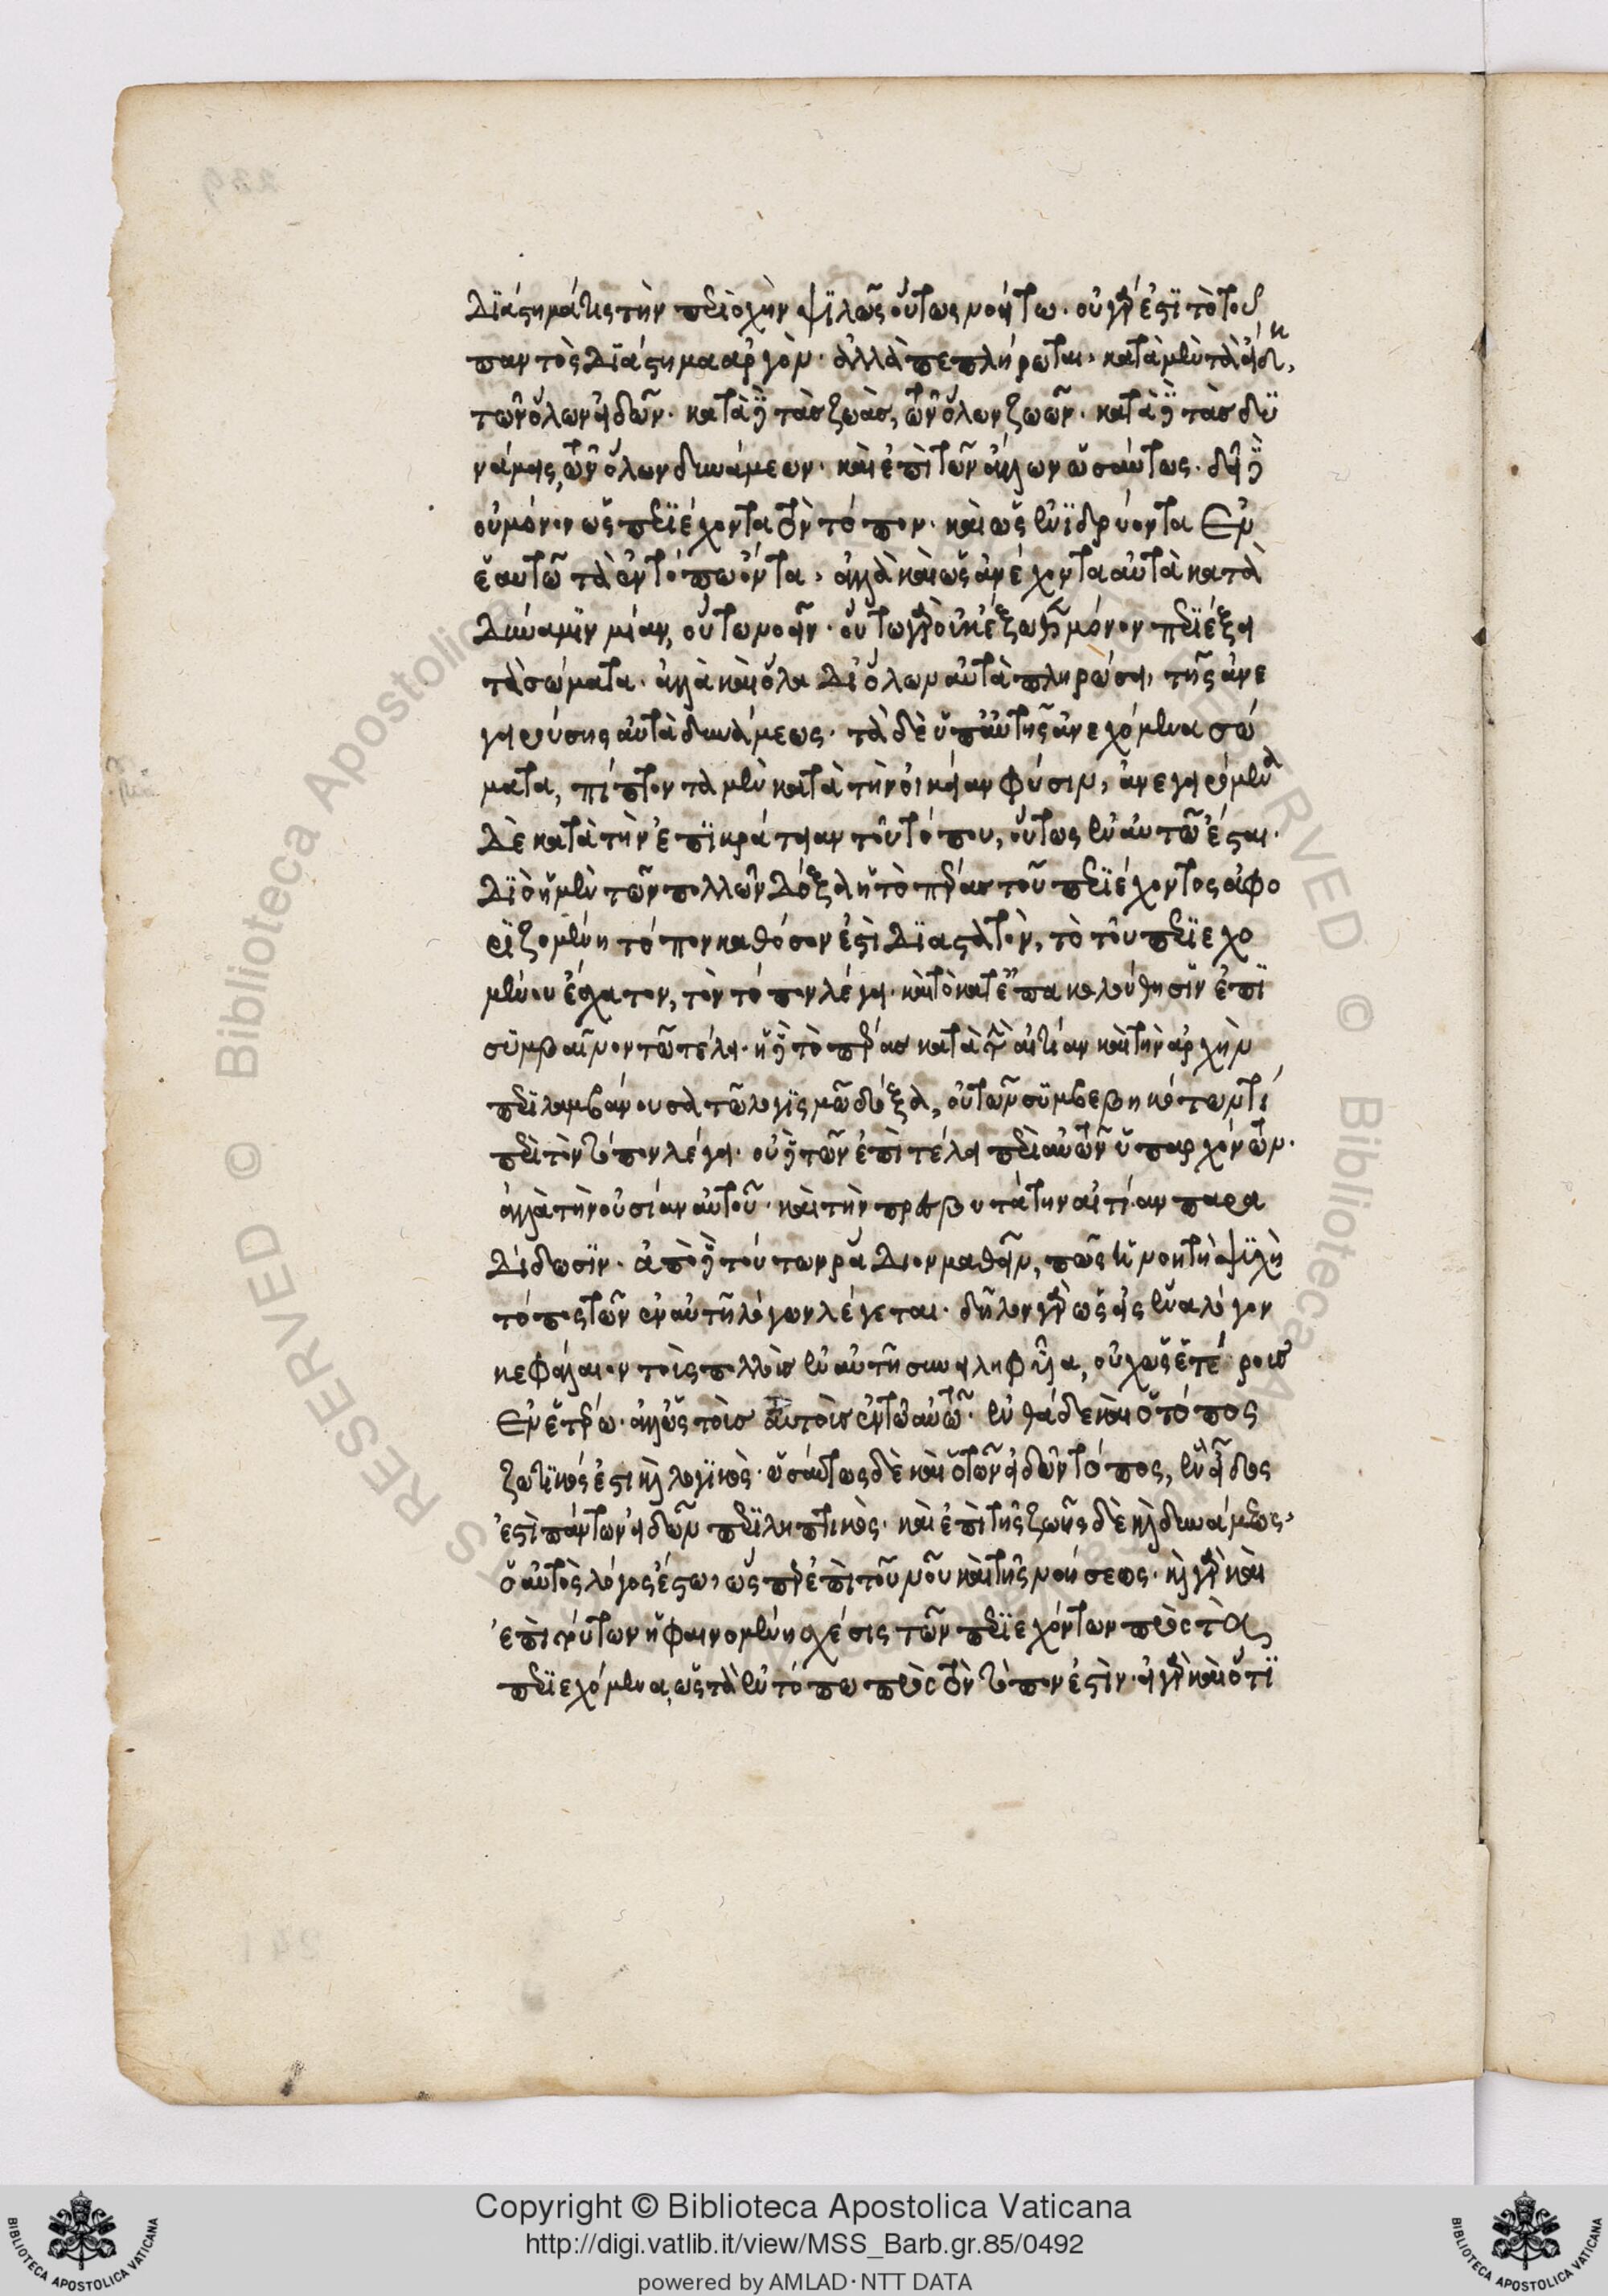 διαστήματος τὴν περιοχὴν ψιλῶς οὕτως νοείτω. οὐ γάρ ἐστι τὸ τοῦ
παντὸς διάστημα ἀργόν. ἀλλὰ πεπλήρωται, κατὰ μὲν τὰ εἴδη,
τῶν ὅλων εἰδῶν. κατὰ δὲ τὰς ζωὰς, τῶν ὅλων ζωῶν. κατὰ δὲ τὰς δυ
νάμεις, τῶν ὅλων δυνάμεων. καὶ ἐπὶ τῶν ἄλλων ὡσαύτως. δεῖ δὲ
οὐ μόνον ὡς περιέχοντα τὸν τόπον. καὶ ὡς ἐνιδρύοντα ἐν
ἑαυτῶ τὰ ἐν τόπω ὄντα, ἀλλὰ καὶ ὡς ἀνέχοντα αὐτὰ κατὰ
δύναμιν μίαν, οὕτω νοεῖν. οὕτω γὰρ οὐκ ἔξωθεν μόνον περιέξει
τὰ σώματα. ἀλλὰ καὶ ὅλα δι' ὅλων αὐτὰ πληρώσει, τῆς ἀνε
γειρούσης αὐτὰ δυνάμεως. τὰ δὲ ὑπ' αὐτῆς ἀνεχόμενα σώ
ματα, πίπτοντα μὲν κατὰ τὴν οἰκείαν φύσιν, ἀνεγειρόμενα
δὲ κατὰ τὴν ἐπικράτειαν τοῦ τόπου, οὕτως ἐν αὐτῶ ἔσται.
διὸ ἡ μὲν τῶν πολλῶν δόξα ἡ τὸ πέρας τοῦ περιέχοντος ἀφο
ριζομένη τόπον καθόσον ἐστὶ διαστατὸν, τὸ τοῦ περιεχο
μένου ἔσχατον, τὸν τόπον λέγει. καὶ τὸ κατ' ἐπακολούθησιν ἐπι
συμβαῖνον τῶ τέλει. ἡ δὲ τὸ πέρας κατὰ τὴν αἰτίαν καὶ τὴν ἀρχὴν
περιλαμβάνουσα τῶ λογισμῶ δόξα, οὐ τῶν συμβεβηκότων τί
περὶ τὸν τόπον λέγει. οὐδὲ τῶν ἐπὶ τέλει περὶ αὐτὸν ὑπαρχόντων.
ἀλλὰ τὴν οὐσίαν αὐτοῦ. καὶ τὴν πρεσβυτάτην αἰτίαν παρα
δίδωσιν. ἀπὸ δὲ τούτων ῥάδιον μαθεῖν, πῶς ἡ νοητὴ ψυχὴ
τόπος τῶν ἐν αὐτῆ λόγων λέγεται. δῆλον γὰρ ὡς εἰς ἕνα λόγον
κεφάλαιον τοῖς πολλοῖς ἐν αὐτῆ συνειληφυῖα, οὐχ ὡς ἑτέροις
ἐν ἑτέρω. ἀλλ' ὡς τοῖς αὐτοῖς ἐν τῶ αὐτῶ. ἐνθάδε καὶ ὁ τόπος
ζωτικός ἐστι καὶ λογικός. ὡσαύτως δὲ καὶ ὁ τῶν εἰδῶν τόπος, ἓν εἶδος
ἐστὶ πάντων εἰδῶν περιληπτικὸς. καὶ ἐπὶ τῆς ζωῆς δὲ καὶ δυνάμεως,
ὁ αὐτὸς λόγος ἔστω, ὥσπερ ἐπὶ τοῦ νοῦ καὶ τῆς νοήσεως. καὶ γὰρ καὶ
ἐπὶ τούτων ἡ φαινομένη σχέσις τῶν περιεχόντων πρὸς τὰ
περιεχόμενα, ὡς τὰ ἐν τόπω πρὸς τὸν τόπον ἐστὶν. εἰ γὰρ καὶ ὅτι
Copyright © Biblioteca Apostolica Vaticana
http://digi.vatlib.it/view/MSS_Barb.gr.85/0492
powered by AMLAD·NTT DATA